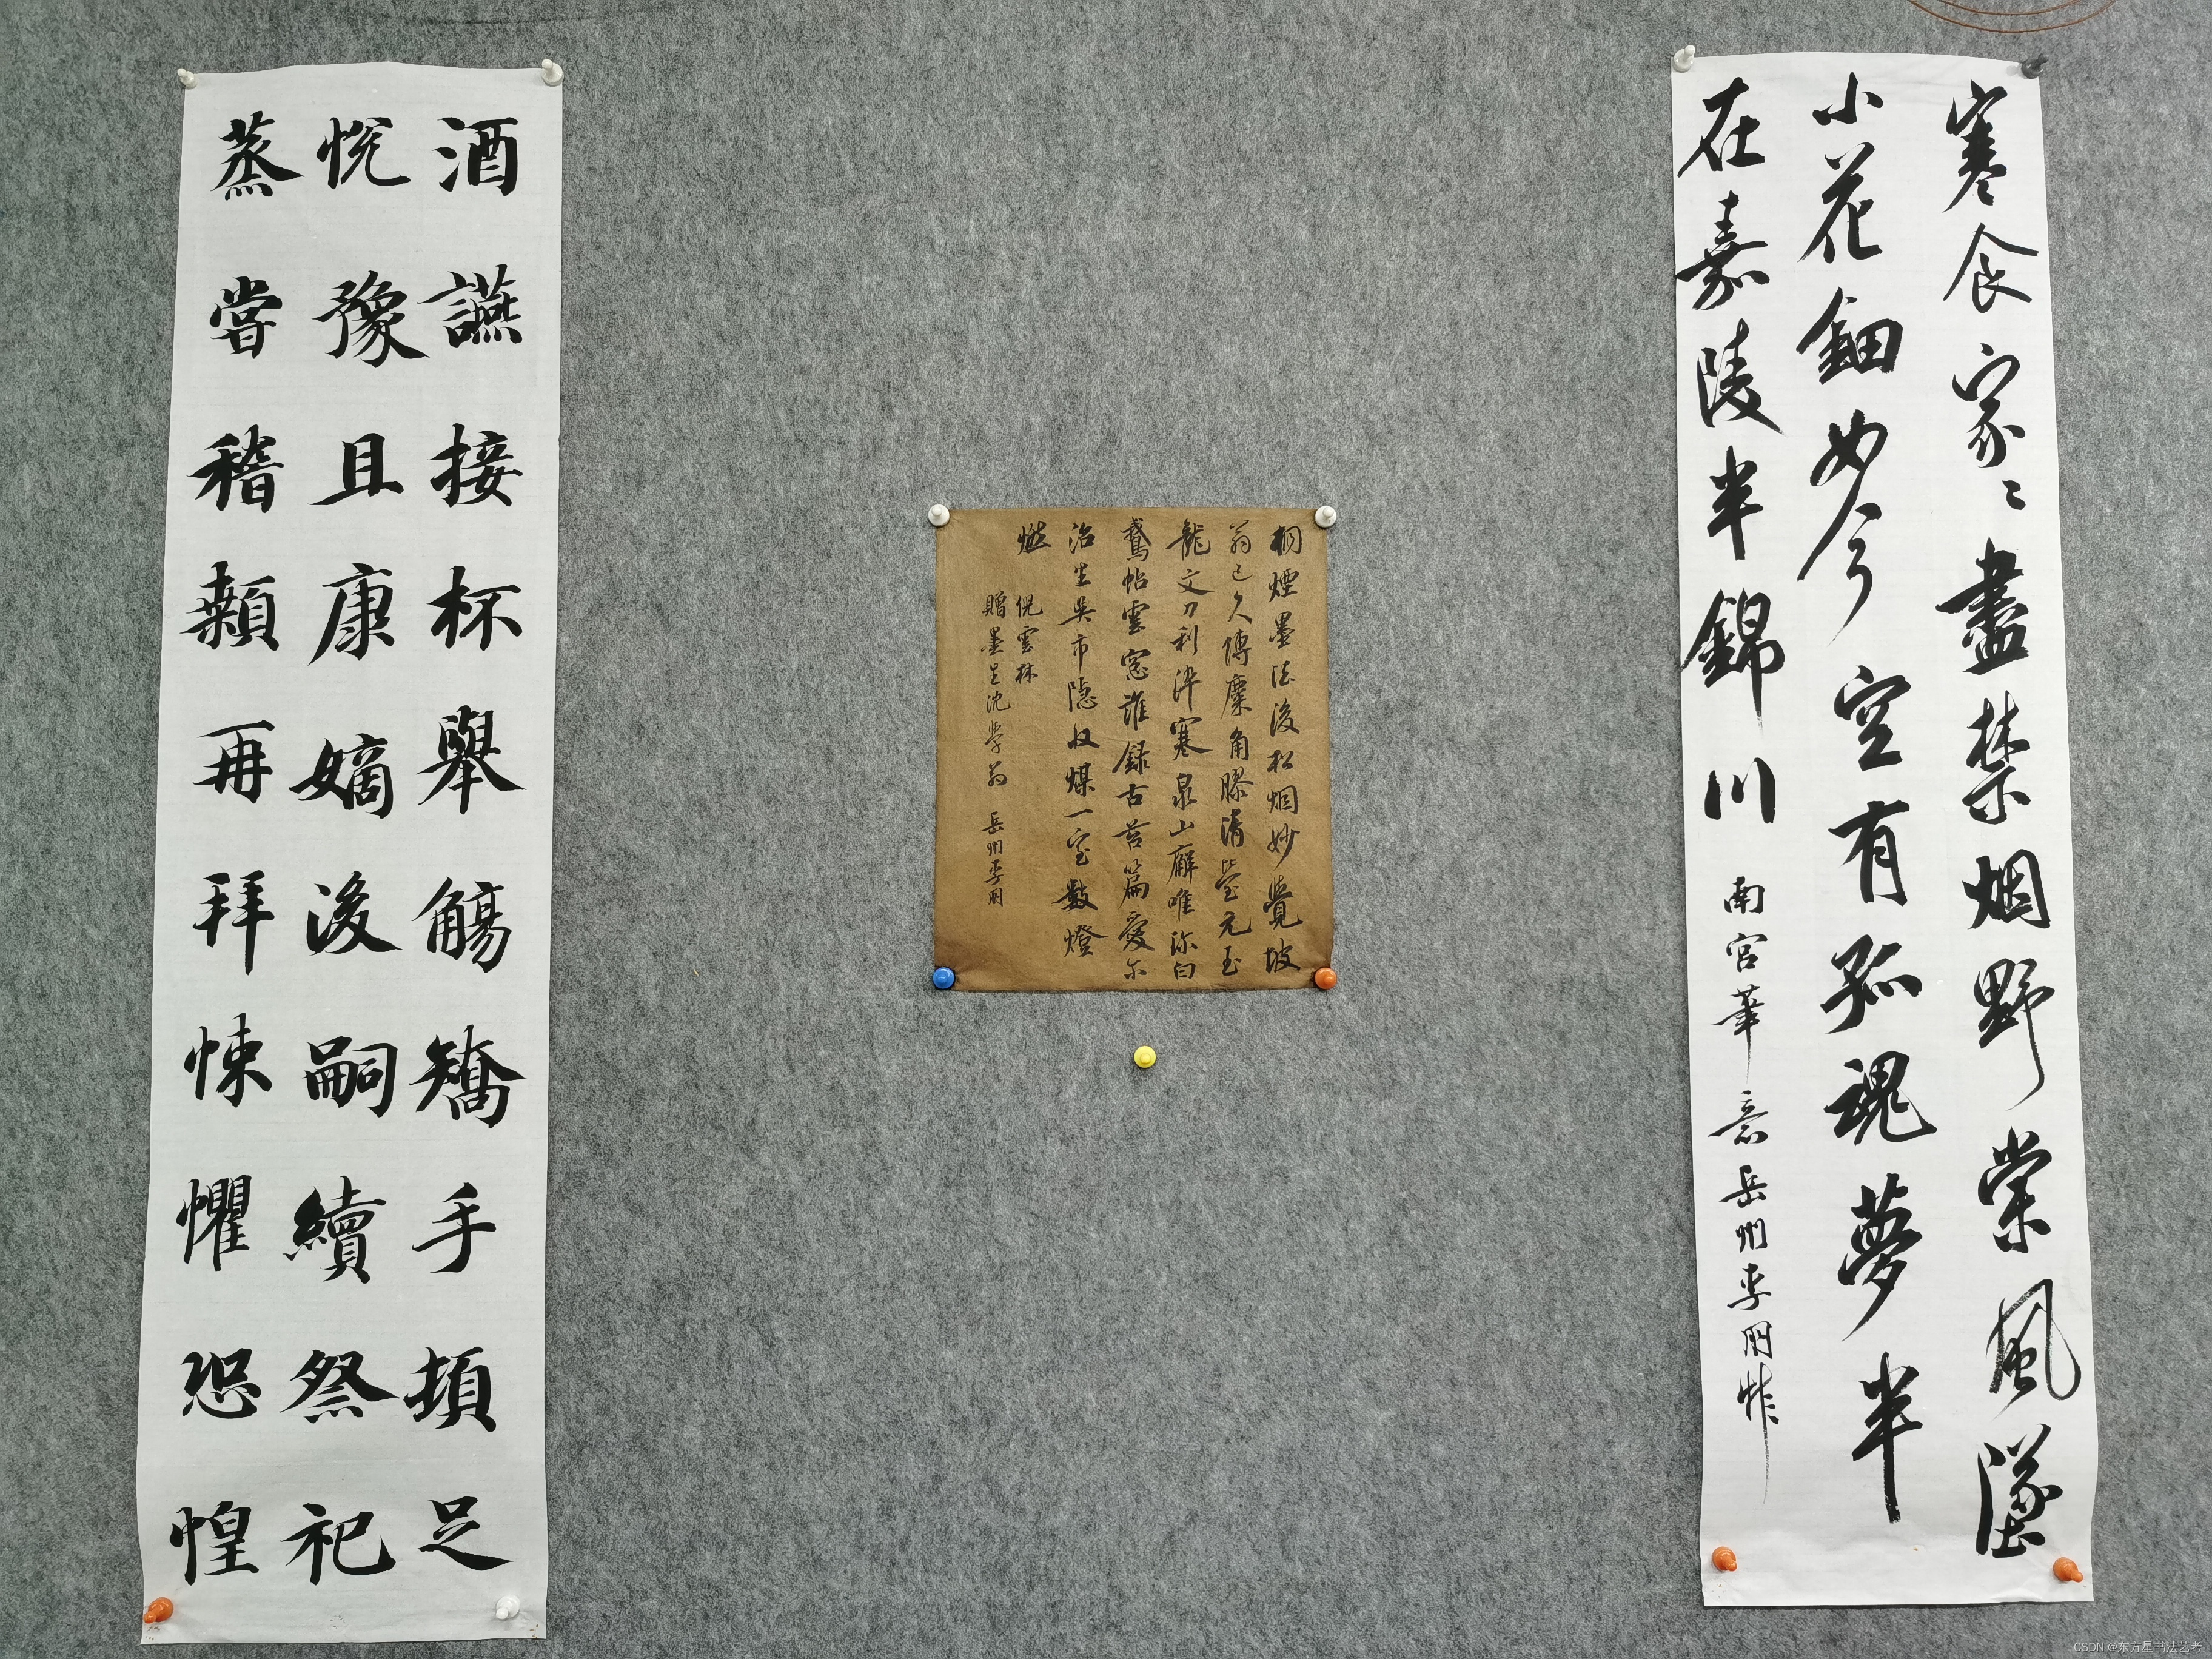 寒食家々盡禁烟野棠風墜
小花鈿如今空有孤魂夢半
在嘉陵半錦川
南宮筆意 岳州李朋作
桐煙墨法後松烟妙覺坡
翁已久傳麋角膠清瑩元玉
龍文刀利淬寒泉山廨唯珎白
鵞帖雲窓誰録古苔篇愛尓
治生吳市隱收煤一室數燈
燃
倪雲林
贈墨生沈學翁 岳州李朋
酒讌接杯舉觴矯手頓足
悅豫且康嫡後嗣續祭祀
蒸嘗稽顙再拜悚懼恐惶
CSDN @东方星书法艺考